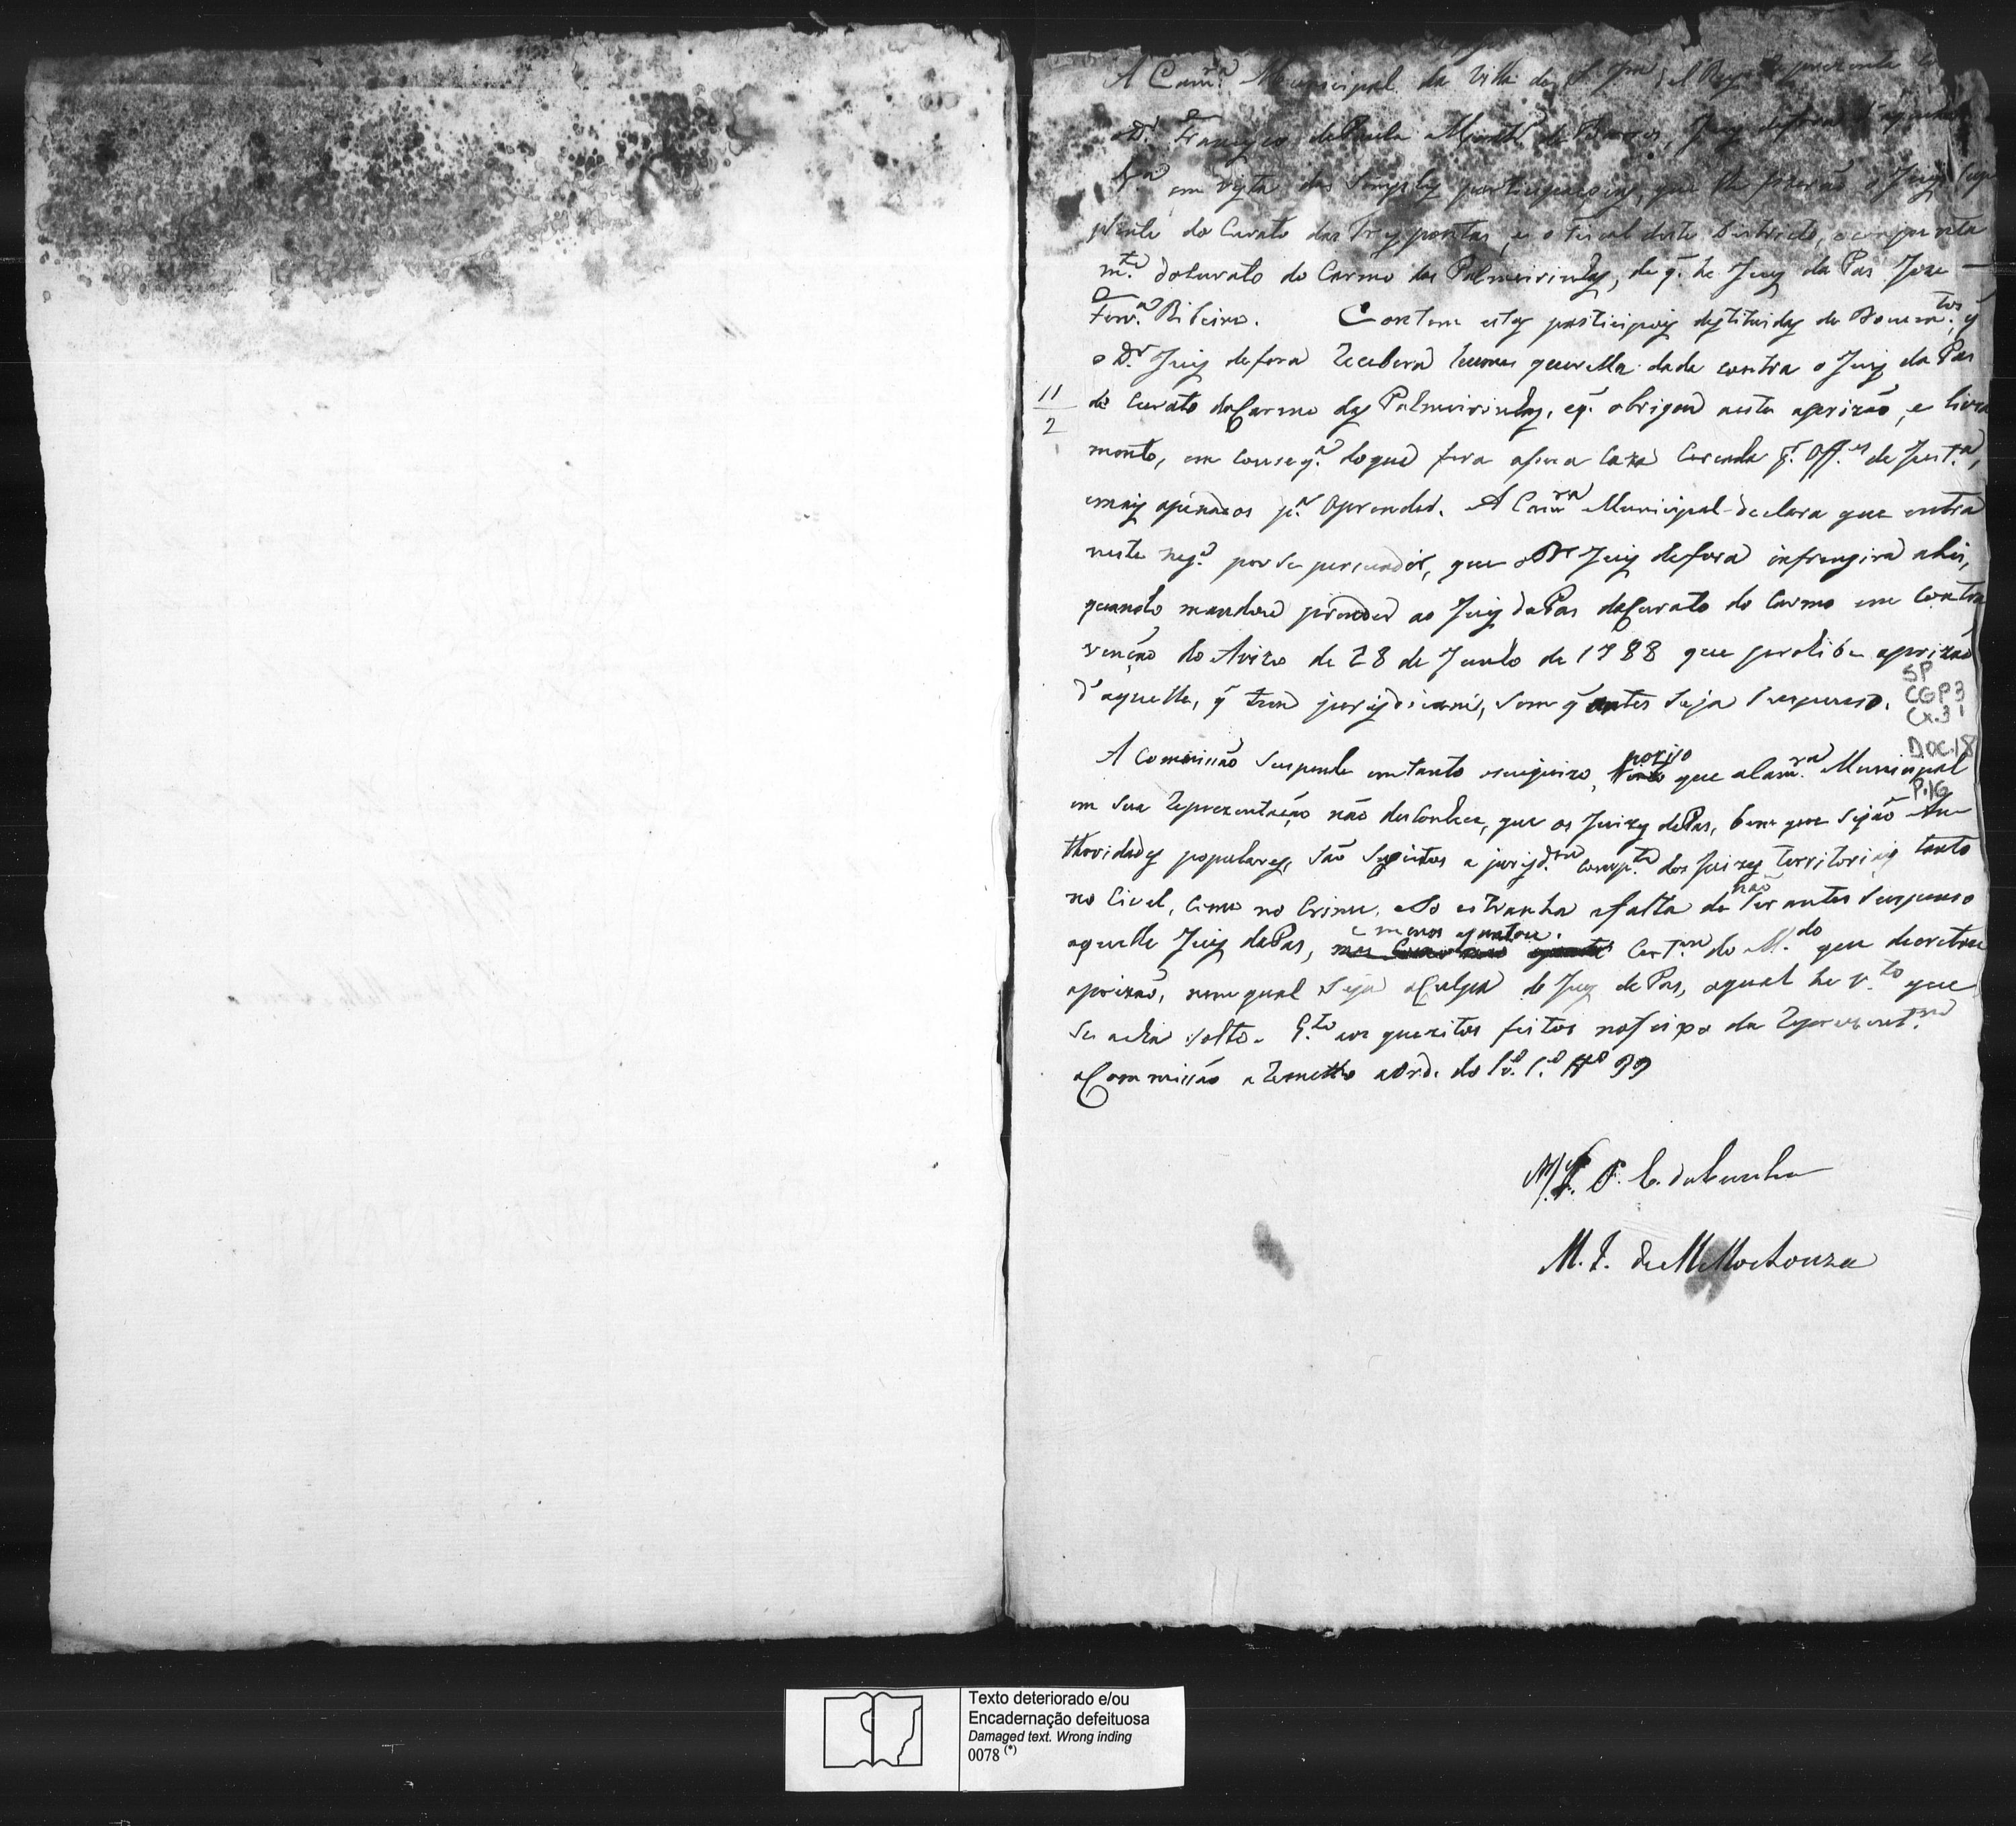 A Cam.ra Municipal da Villa de S. João d'El Rey reprezenta
o D.r Francisco de Paula Monteiro de Barros, Juiz de fora
em vista das simplез participaçoens, que lhe fizerão o Juiz Sup
plente do Curato das Trez pontas, e o Fiscal deste Districto, e conjunta
m.te do Curato do Carmo das Palmeirinhas, de q. he Juiz da Pas Joze
Ferr.a Ribeiro. Contem estas participoiz destituidas de Docum.tos, q̃
o D.r Juiz de fora recebera huma querella dada contra o Juiz da Pas
11
2
do Curato do Carmo das Palmeirinhas, e q. obrigou nesta a prizão, e livra
mento, em conseq.a do que fora a sua Caza Cercada p.r Off.es de Just.a,
e mais apenados p.a o prender. A Cam.ra Municipal declara que entra
neste neg.o por se persuadir, que o D.r Juiz de fora infringira a Lei,
quando mandou prender ao Juiz da Pas do Curato do Carmo em contra
venção do Avizo de 28 de Junho de 1788 que prohibe a prizão
d'aquelle, q̃ tem jurisdicam, sem q̃ antes seja suspenso.
SP
CGP3
Cx.3
DOC.18
P.16
A Commissão suspende em tanto o seu juizo, porisso que a Cam.ra Municipal
em sua reprezentação não desconhece, que os Juizes de Pas, bem que sejão Au
thoridades populares, são sugeitos a jurisd.am comp.te dos Juizes territoriais tanto
no Civel, como no Crime. Só estranha a falta de não ser antes suspenso
aquelle Juiz da Pas, e menos ajuntou Cert.am do M.do que decretou
a prizão, nem qual seja a Culpa do Juiz de Pas, o qual he v.to que
se acha solto. Q.to aos quezitos feitos no fim da reprezent.am
a Commissão a remette a Ord. do L.o 1.o tt.o 99
C. da Cunha
M. J. de Mello e Souza
Texto deteriorado e/ou
Encadernação defeituosa
Damaged text. Wrong inding
0078 (*)